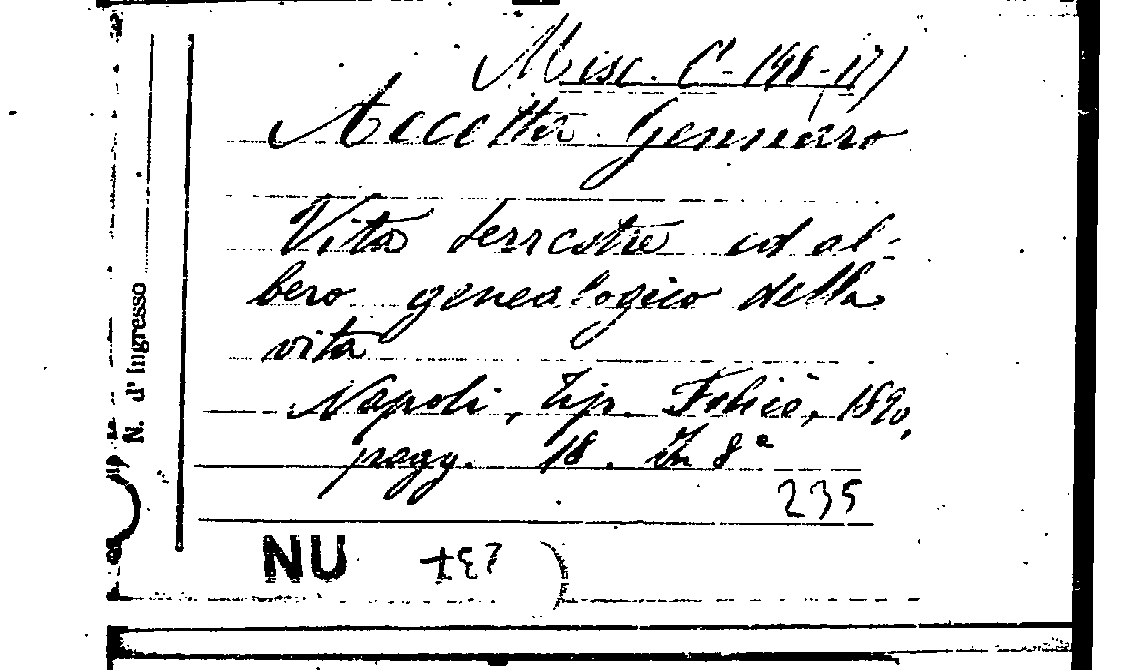 Misc. C-198-17)
Accetta Gennaro
Vita terrestre ed al-
bero genealogico della
vita
Napoli, Tip. Felice, 1890,
pagg. 18. In 8°
235
N. d'Ingresso
NU